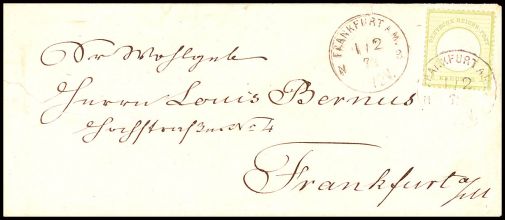 Sr Wohlgeb
Herrn Louis Bernus
Hochstraße No 4
Frankfurt a/M
FRANKFURT A.M.
1 2
DEUTSCHE REICHS-POST
FRANKFURT A.
1 2